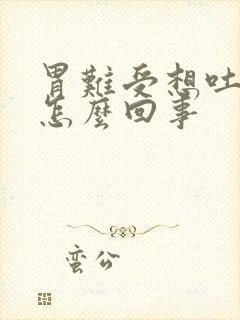 胃難受想吐
怎麼回事
蛮公